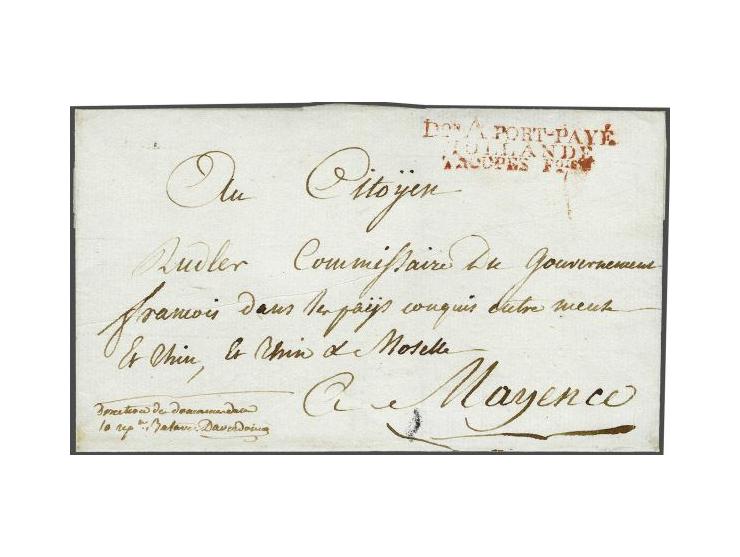 Don A PORT-PAYÉ
HOLLANDE
TROUPES
Au Citoÿen
Rudler Commissaire Du Gouvernement
francois dans les païs conquis entre meuse
Et Rhin, Et Rhin & Moselle
A Mayence
Direction de
la rep. Batave